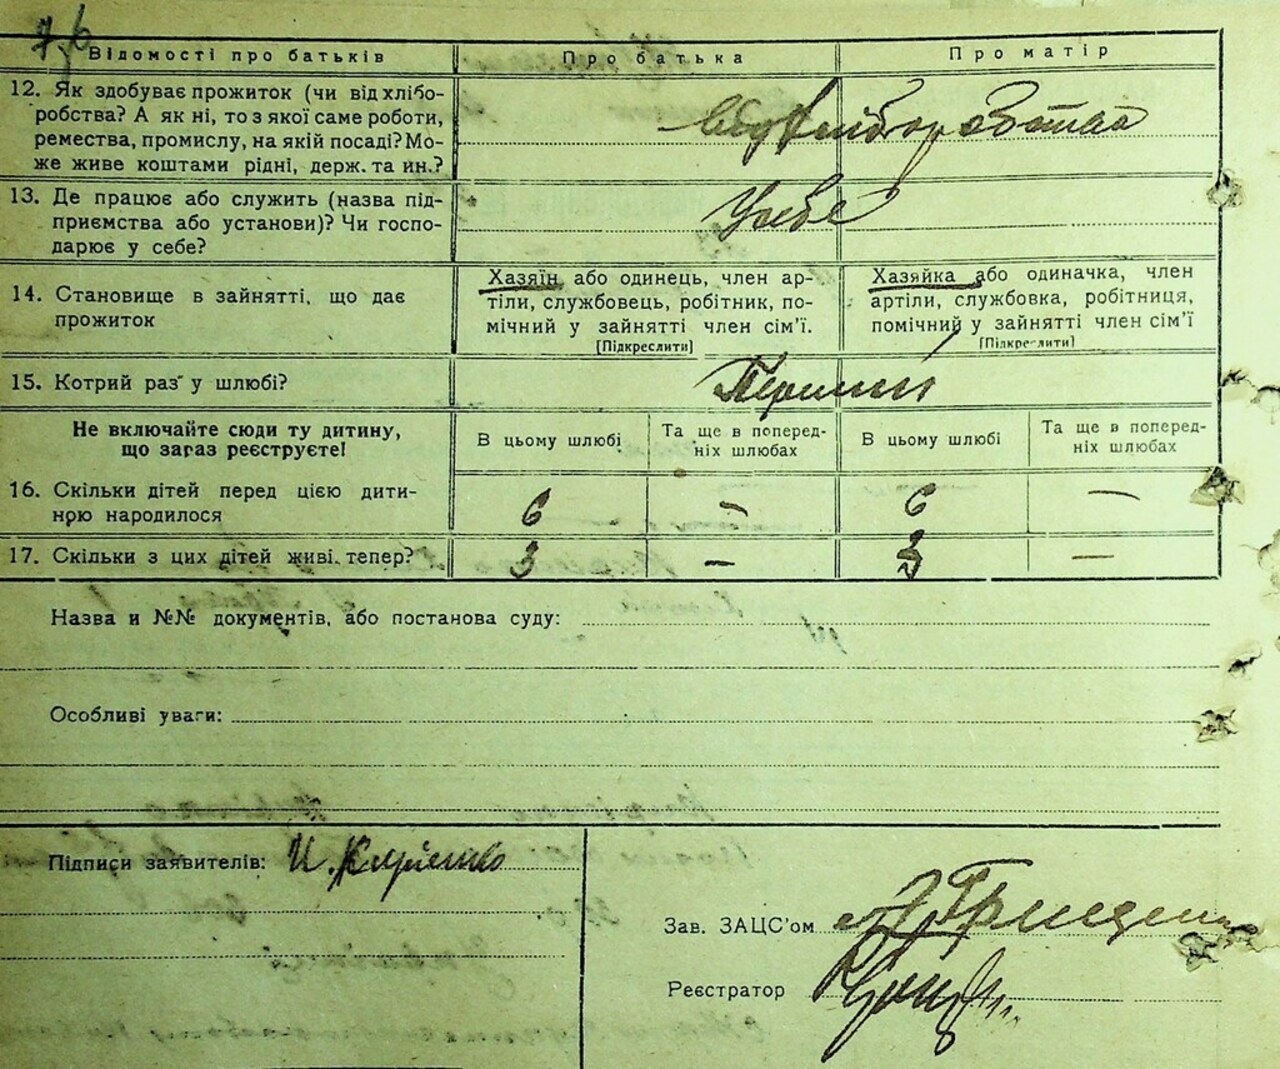 7 б
Відомості про батьків
Про батька
Про матір
12. Як здобуває прожиток (чи від хлібо-
робства? А як ні, то з якої саме роботи,
ремества, промислу, на якій посаді? Мо-
же живе коштами рідні, держ. та ин.?
13. Де працює або служить (назва під-
приємства або установи)? Чи госпо-
дарює у себе?
У себе
14. Становище в зайнятті, що дає
прожиток
Хазяїн або одинець, член ар-
тіли, службовець, робітник, по-
мічний у зайнятті член сім’ї.
[Підкреслити]
Хазяйка або одиначка, член
артіли, службовка, робітниця,
помічний у зайнятті член сім’ї
[Підкреслити]
15. Котрий раз у шлюбі?
Перший
Не включайте сюди ту дитину,
що зараз реєструєте!
В цьому шлюбі
Та ще в поперед-
ніх шлюбах
В цьому шлюбі
Та ще в поперед-
ніх шлюбах
16. Скільки дітей перед цією дити-
ною народилося
6 – 6 –
17. Скільки з цих дітей живі тепер?
3 – 3 –
Назва и №№ документів, або постанова суду:
Особливі уваги:
Підписи заявителів:
Зав. ЗАЦС’ом
Реєстратор